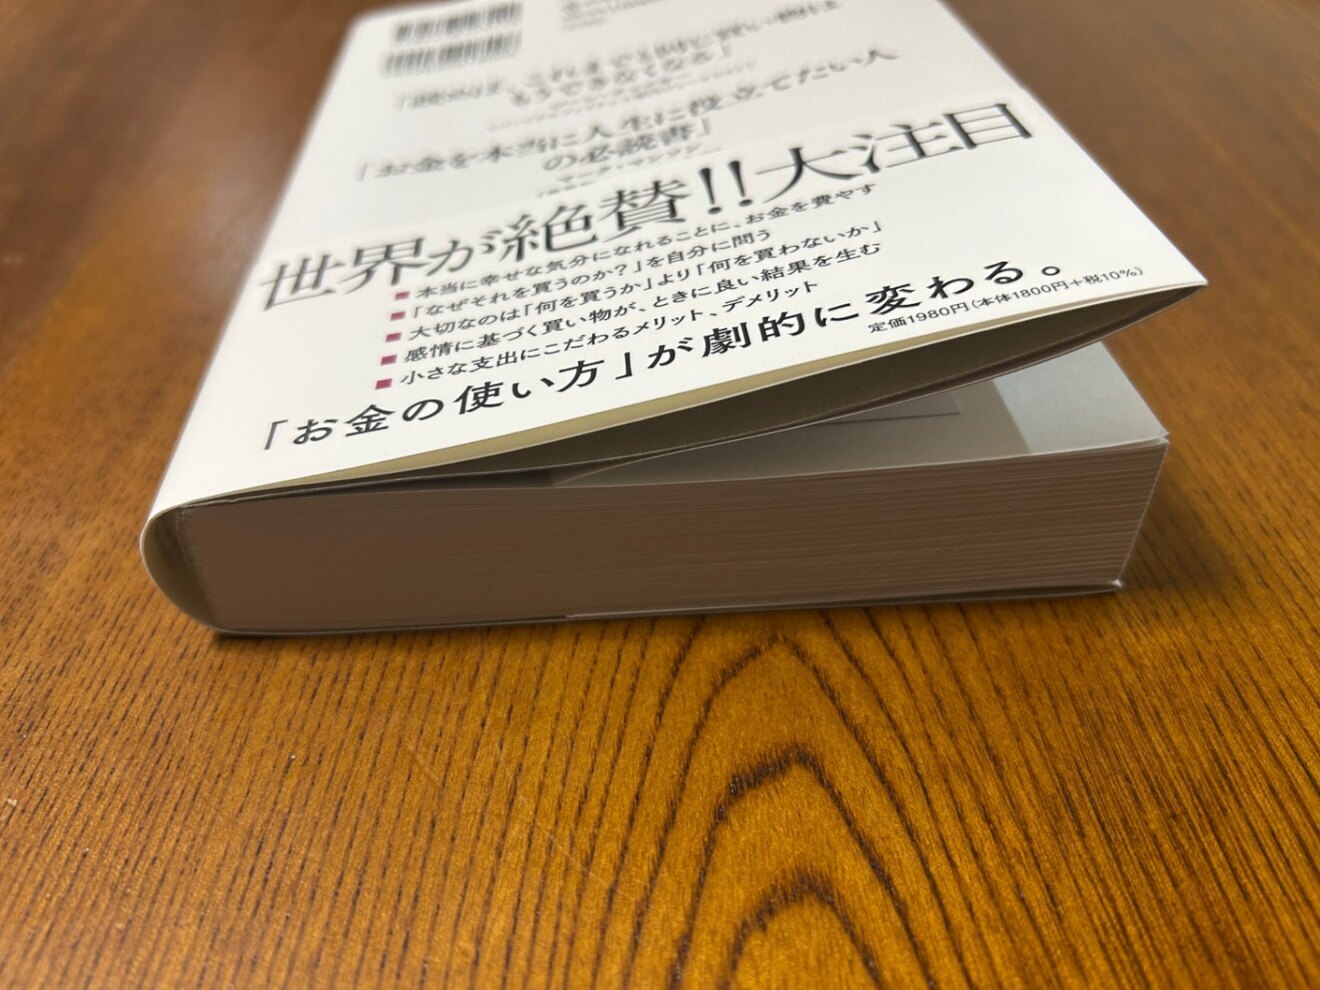 「お金を本当に人生に役立てたい人
の必読書」
マーク・マンソン
世界が絶賛!!大注目
■ 本当に幸せな気分になれることに、お金を費やす
■ 「なぜそれを買うのか?」を自分に問う
■ 大切なのは「何を買うか」より「何を買わないか」
■ 感情に基づく買い物が、ときに良い結果を生む
■ 小さな支出にこだわるメリット、デメリット
「お金の使い方」が劇的に変わる。
定価1980円(本体1800円+税10%)